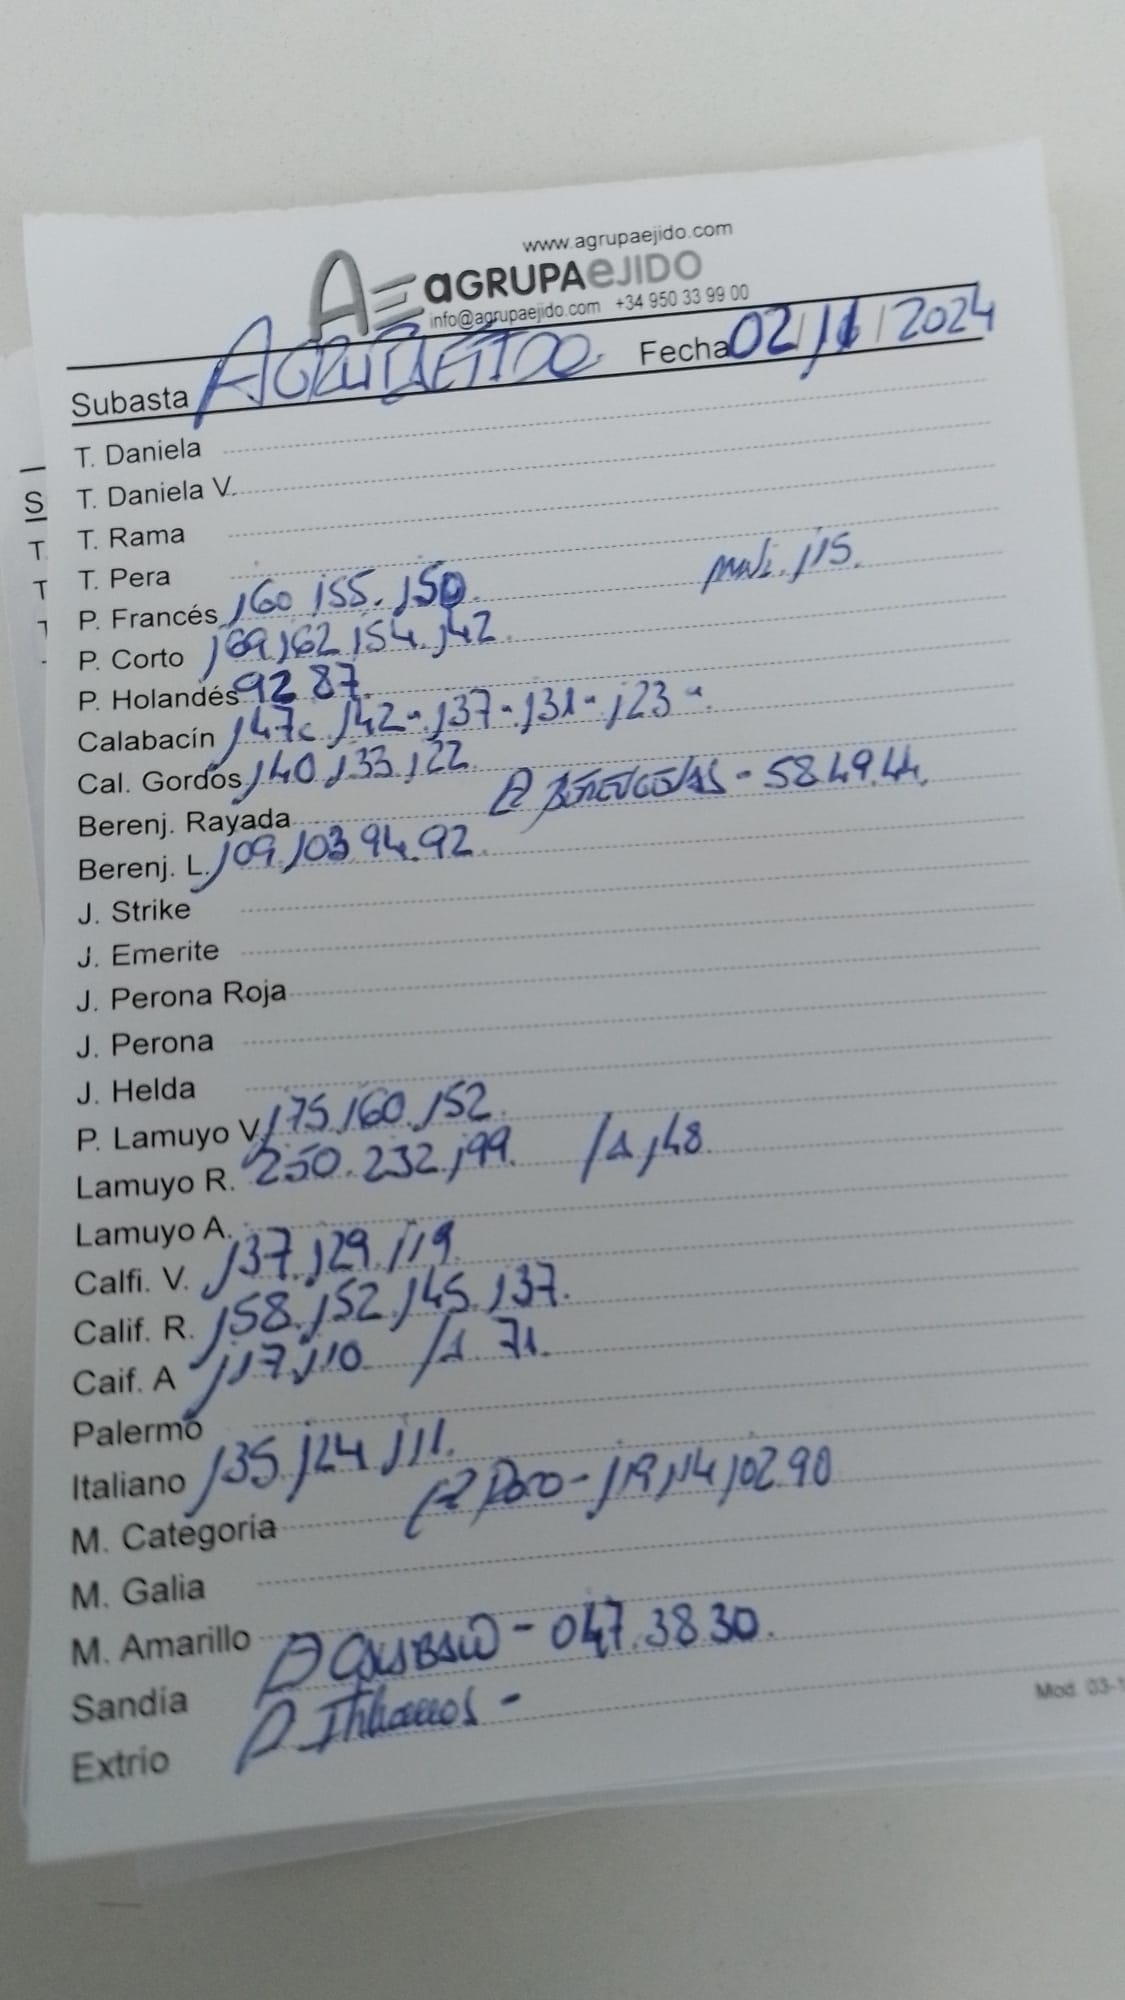 www.agrupaejido.com
AE aGRUPAeJIDO
info@agrupaejido.com +34 950 33 99 00
Subasta AGRUPAEJIDO Fecha 02/11/2024
T. Daniela
T. Daniela V.
T. Rama
T. Pera
P. Francés 160 155. 150. 115.
P. Corto 169 162 154. 142.
P. Holandés 92 87.
Calabacín 147c 142- 137- 131- 123-.
Cal. Gordos 140 133 122.
Berenj. Rayada - 58.49.44.
Berenj. L. 109 103 94.92.
J. Strike
J. Emerite
J. Perona Roja
J. Perona
J. Helda
P. Lamuyo V. 175 160. 152.
Lamuyo R. 250. 232. 199. /A 148.
Lamuyo A.
Calfi. V. 137. 129. 119.
Calif. R. 158. 152. 145. 137.
Caif. A 117 110 /A. 71.
Palermo
Italiano 135. 124 111.
M. Categoría - 119 114 102 90
M. Galia
M. Amarillo
Sandía - 047.38.30.
Extrio
Mod. 03-1
S
T.
T